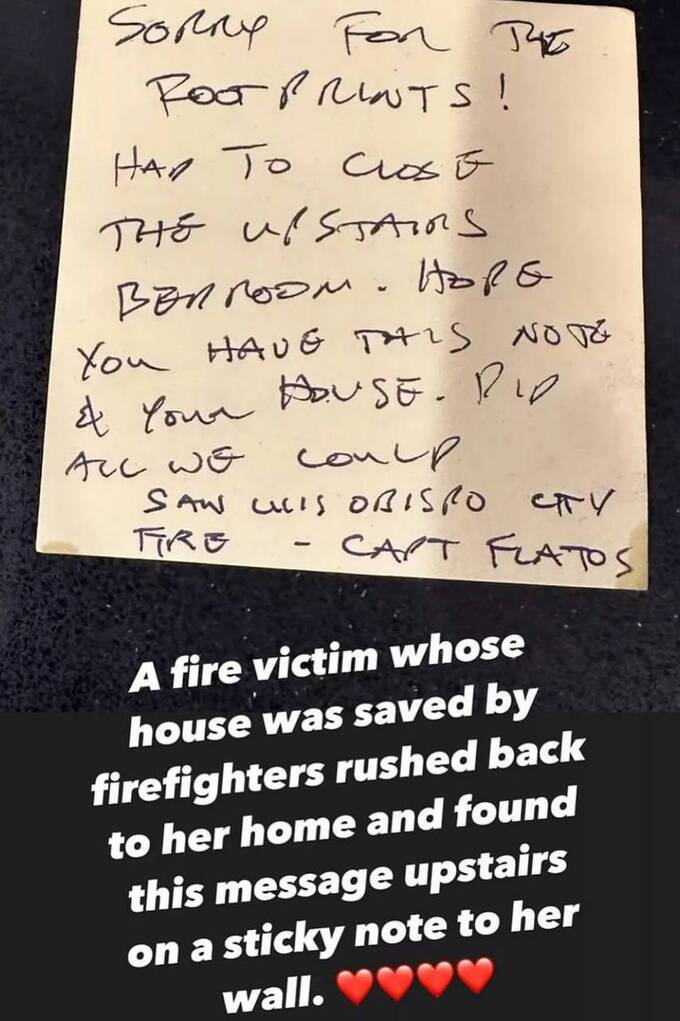 SORRY FOR THE
FOOTPRINTS!
HAD TO CLOSE
THE UPSTAIRS
BEDROOM. HOPE
YOU HAVE THIS NOTE
& YOUR HOUSE. DID
ALL WE COULD
SAN LUIS OBISPO CITY
FIRE - CAPT FLATOS
A fire victim whose
house was saved by
firefighters rushed back
to her home and found
this message upstairs
on a sticky note to her
wall. ❤️❤️❤️❤️